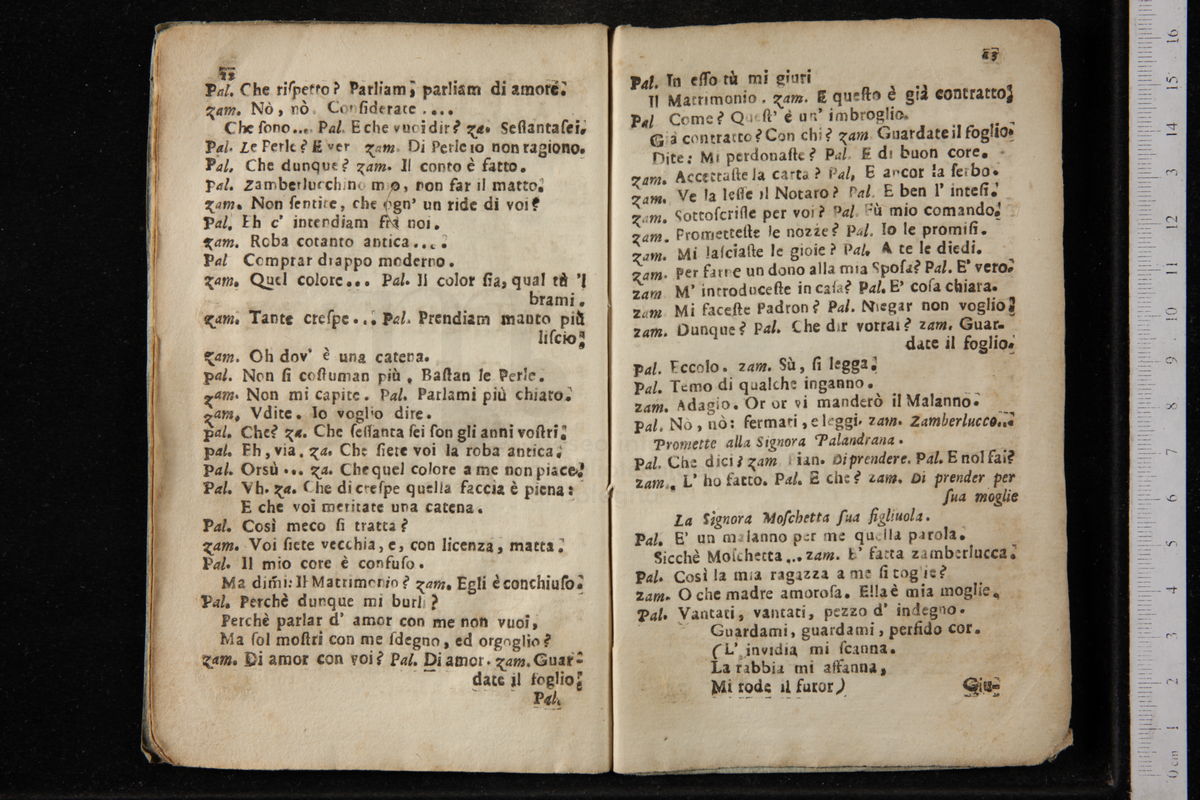 22
Pal. Che riſpetto? Parliam, parliam di amore.
zam. Nò, nò. Conſiderate ....
Che ſono... Pal. E che vuoi dir? za. Seſſantaſei.
Pal. Le Perle? E ver zam. Di Perle io non ragiono.
Pal. Che dunque? zam. Il conto è fatto.
Pal. Zamberlucchino mio, non far il matto.
zam. Non ſentite, che ogn' un ride di voi?
Pal. Eh c' intendiam frà noi.
zam. Roba cotanto antica....
Pal Comprar drappo moderno.
zam. Quel colore... Pal. Il color ſia, qual tù 'l
brami.
zam. Tante creſpe... Pal. Prendiam manto più
liſcio;
zam. Oh dov' è una catena.
pal. Non ſi coſtuman più. Baſtan le Perle.
zam. Non mi capite. Pal. Parlami più chiaro.
zam. Vdite. Io voglio dire.
pal. Che? za. Che ſeſſanta ſei ſon gli anni voſtri;
pal. Eh, via. za. Che ſiete voi la roba antica.
Pal. Orsù... za. Che quel colore a me non piace.
Pal. Vh. za. Che di creſpe quella faccia è piena:
E che voi meritate una catena.
Pal. Così meco ſi tratta?
zam. Voi ſiete vecchia, e, con licenza, matta.
Pal. Il mio core è confuſo.
Ma dimi: Il Matrimonio? zam. Egli è conchiuſo.
Pal. Perchè dunque mi burli?
Perchè parlar d' amor con me non vuoi,
Ma ſol moſtri con me ſdegno, ed orgoglio?
zam. Di amor con voi? Pal. Di amor. zam. Guar-
date il foglio.
Pal.
23
Pal. In eſſo tù mi giuri
Il Matrimonio. zam. E queſto è già contratto.
Pal Come? Queſt' è un' imbroglio.
Già contratto? Con chi? zam. Guardate il foglio.
Dite: Mi perdonaſte? Pal. E di buon core.
zam. Accettaſte la carta? Pal, E ancor la ſerbo.
zam. Ve la leſſe il Notaro? Pal. E ben l' inteſi.
zam. Sottoſcriſſe per voi? Pal. Fù mio comando.
zam. Prometteſte le nozze? Pal. Io le promiſi.
zam. Mi laſciaſte le gioie? Pal. A te le diedi.
zam. Per farne un dono alla mia Spoſa? Pal. E' vero.
zam M' introduceſte in caſa? Pal. E' coſa chiara.
zam Mi faceſte Padron? Pal. Niegar non voglio.
zam. Dunque? Pal. Che dir vorrai? zam. Guar-
date il foglio.
pal. Eccolo. zam. Sù, ſi legga.
Pal. Temo di qualche inganno.
zam. Adagio. Or or vi manderò il Malanno.
pal. Nò, nò: fermati, e leggi. zam. Zamberlucco...
Promette alla Signora Palandrana.
Pal. Che dici? zam Pian. Di prendere. Pal. E nol fai?
zam. L' ho fatto. Pal. E che? zam. Di prender per
ſua moglie
La Signora Moſchetta ſua figliuola.
Pal. E' un malanno per me quella parola.
Sicchè Moſchetta... zam. E' fatta zamberlucca.
Pal. Così la mia ragazza a me ſi toglie?
zam. O che madre amoroſa. Ella è mia moglie.
Pal. Vantati, vantati, pezzo d' indegno.
Guardami, guardami, perfido cor.
(L' invidia mi ſcanna.
La rabbia mi affanna,
Mi rode il furor)
Giu-